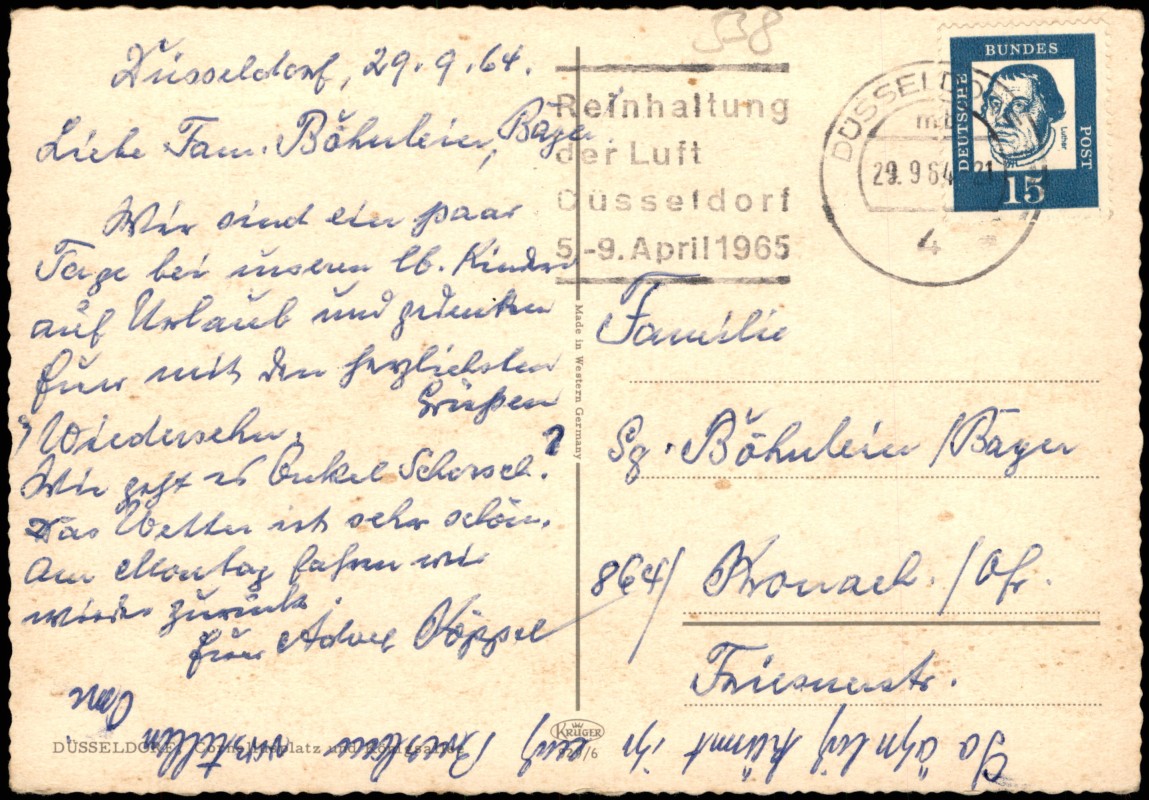 538
Düsseldorf, 29.9.64.
Liebe Fam. Böhnlein, Bayer
Wir sind ein paar
Tage bei unseren lb. Kinder
auf Urlaub und gedenken
Euer mit den herzlichsten
Grüßen
Wiedersehn.
Wie geht es Onkel Schorsch?
Das Wetter ist sehr schön.
Am Montag fahren wir
wieder zurück.
Euer Adolf Köppel
So ähnlich könnt ihr
euch Breslau vorstellen
DÜSSELDORF, Corneliusplatz und Königsallee
Reinhaltung
der Luft
Düsseldorf
5.-9. April 1965
DÜSSELDORF
29.9.64 21
4
BUNDES
DEUTSCHE
POST
Luther
15
Made in Western Germany
Familie
Sg. Böhnlein / Bayer
864/ Kronach / Ofr.
Friesnerstr.
KRÜGER
/6